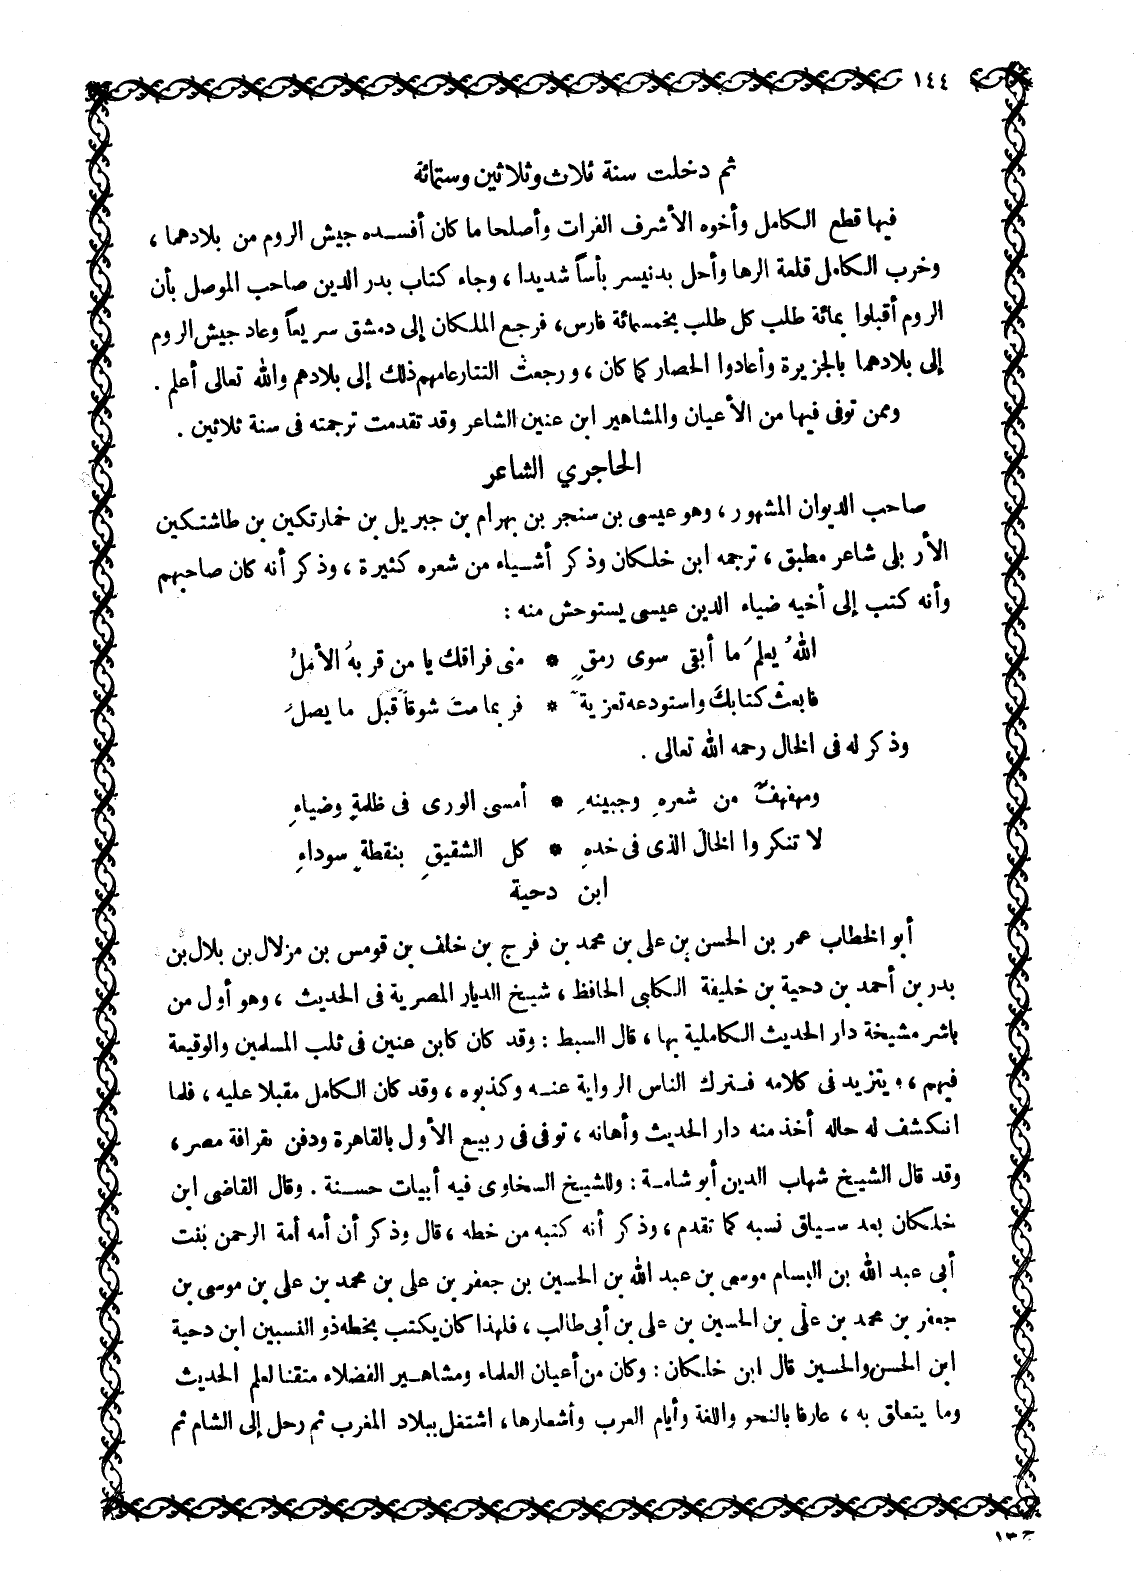 ١٤٤
ثم دخلت سنة ثلاث وثلاثين وستمائة
فيها قطع الكامل وأخوه الأشرف الفرات وأصلحا ما كان أفسده جيش الروم من بلادهما ،
وخرب الكامل قلعة الرها وأحل بدنيسر بأساً شديدا ، وجاء كتاب بدر الدين صاحب الموصل بأن
الروم أقبلوا بمائة طلب كل طلب بخمسمائة فارس، فرجع الملكان إلى دمشق سريعاً وعاد جيش الروم
إلى بلادهما بالجزيرة وأعادوا الحصار كما كان ، ورجعت التتار عامهم ذلك إلى بلادهم والله تعالى أعلم .
وممن توفى فيها من الأعيان والمشاهير ابن عنين الشاعر وقد تقدمت ترجمته فى سنة ثلاثين .
الحاجري الشاعر
صاحب الديوان المشهور ، وهو عيسى بن سنجر بن بهرام بن جبريل بن خمارتكين بن طاشتكين
الأربلى شاعر مطبق ، ترجمه ابن خلكان وذكر أشياء من شعره كثيرة ، وذكر أنه كان صاحبهم
وأنه كتب إلى أخيه ضياء الدين عيسى يستوحش منه :
اللهُ يعلمَ ما أبقى سوى رمقٍ * منى فراقك يا من قربهُ الأملُ
فابعثْ كتابكَ واستودعه تعزيةً * فربما متَ شوقاً قبلَ ما يصلَُ
وذكر له فى الخال رحمه الله تعالى .
ومهفهفٌ من شعرهِ وجبينهِ * أمسى الورى فى ظلمةٍ وضياءِ
لا تنكروا الخالَ الذى فى خدهِ * كل الشقيقِ بنقطةٍ سوداءِ
ابن دحية
أبو الخطاب عمر بن الحسن بن على بن محمد بن فرج بن خلف بن قومس بن مزلال بن بلال بن
بدر بن أحمد بن دحية بن خليفة الكلبى الحافظ ، شيخ الديار المصرية فى الحديث ، وهو أول من
باشر مشيخة دار الحديث الكاملية بها ، قال السبط : وقد كان كابن عنين فى ثلب المسلمين والوقيعة
فيهم ، ويتزيد فى كلامه فترك الناس الرواية عنه وكذبوه ، وقد كان الكامل مقبلا عليه ، فلما
انكشف له حاله أخذ منه دار الحديث وأهانه ، توفى فى ربيع الأول بالقاهرة ودفن بقرافة مصر ،
وقد قال الشيخ شهاب الدين أبو شامة : وللشيخ السخاوى فيه أبيات حسنة . وقال القاضى ابن
خلكان بعد سياق نسبه كما تقدم ، وذكر أنه كتبه من خطه ، قال وذكر أن أمه أمة الرحمن بنت
أبى عبد الله بن البسام موسى بن عبد الله بن الحسين بن جعفر بن على بن محمد بن على بن موسى بن
جعفر بن محمد بن على بن الحسين بن على بن أبى طالب ، فلهذا كان يكتب بخطه ذو النسبين ابن دحية
ابن الحسن والحسين قال ابن خلكان : وكان من أعيان العلماء ومشاهير الفضلاء متقنا لعلم الحديث
وما يتعلق به ، عارفا بالنحو واللغة وأيام العرب وأشعارها ، اشتغل ببلاد المغرب ثم رحل إلى الشام ثم
ج ١٣